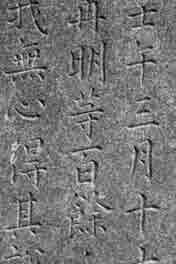 七午三月十
明等百餘
我無心得其